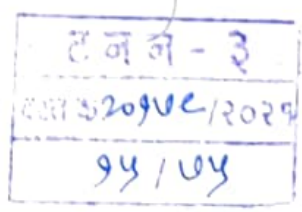 ट न न - ३
२०१७९/२०२१
१५ / ७५